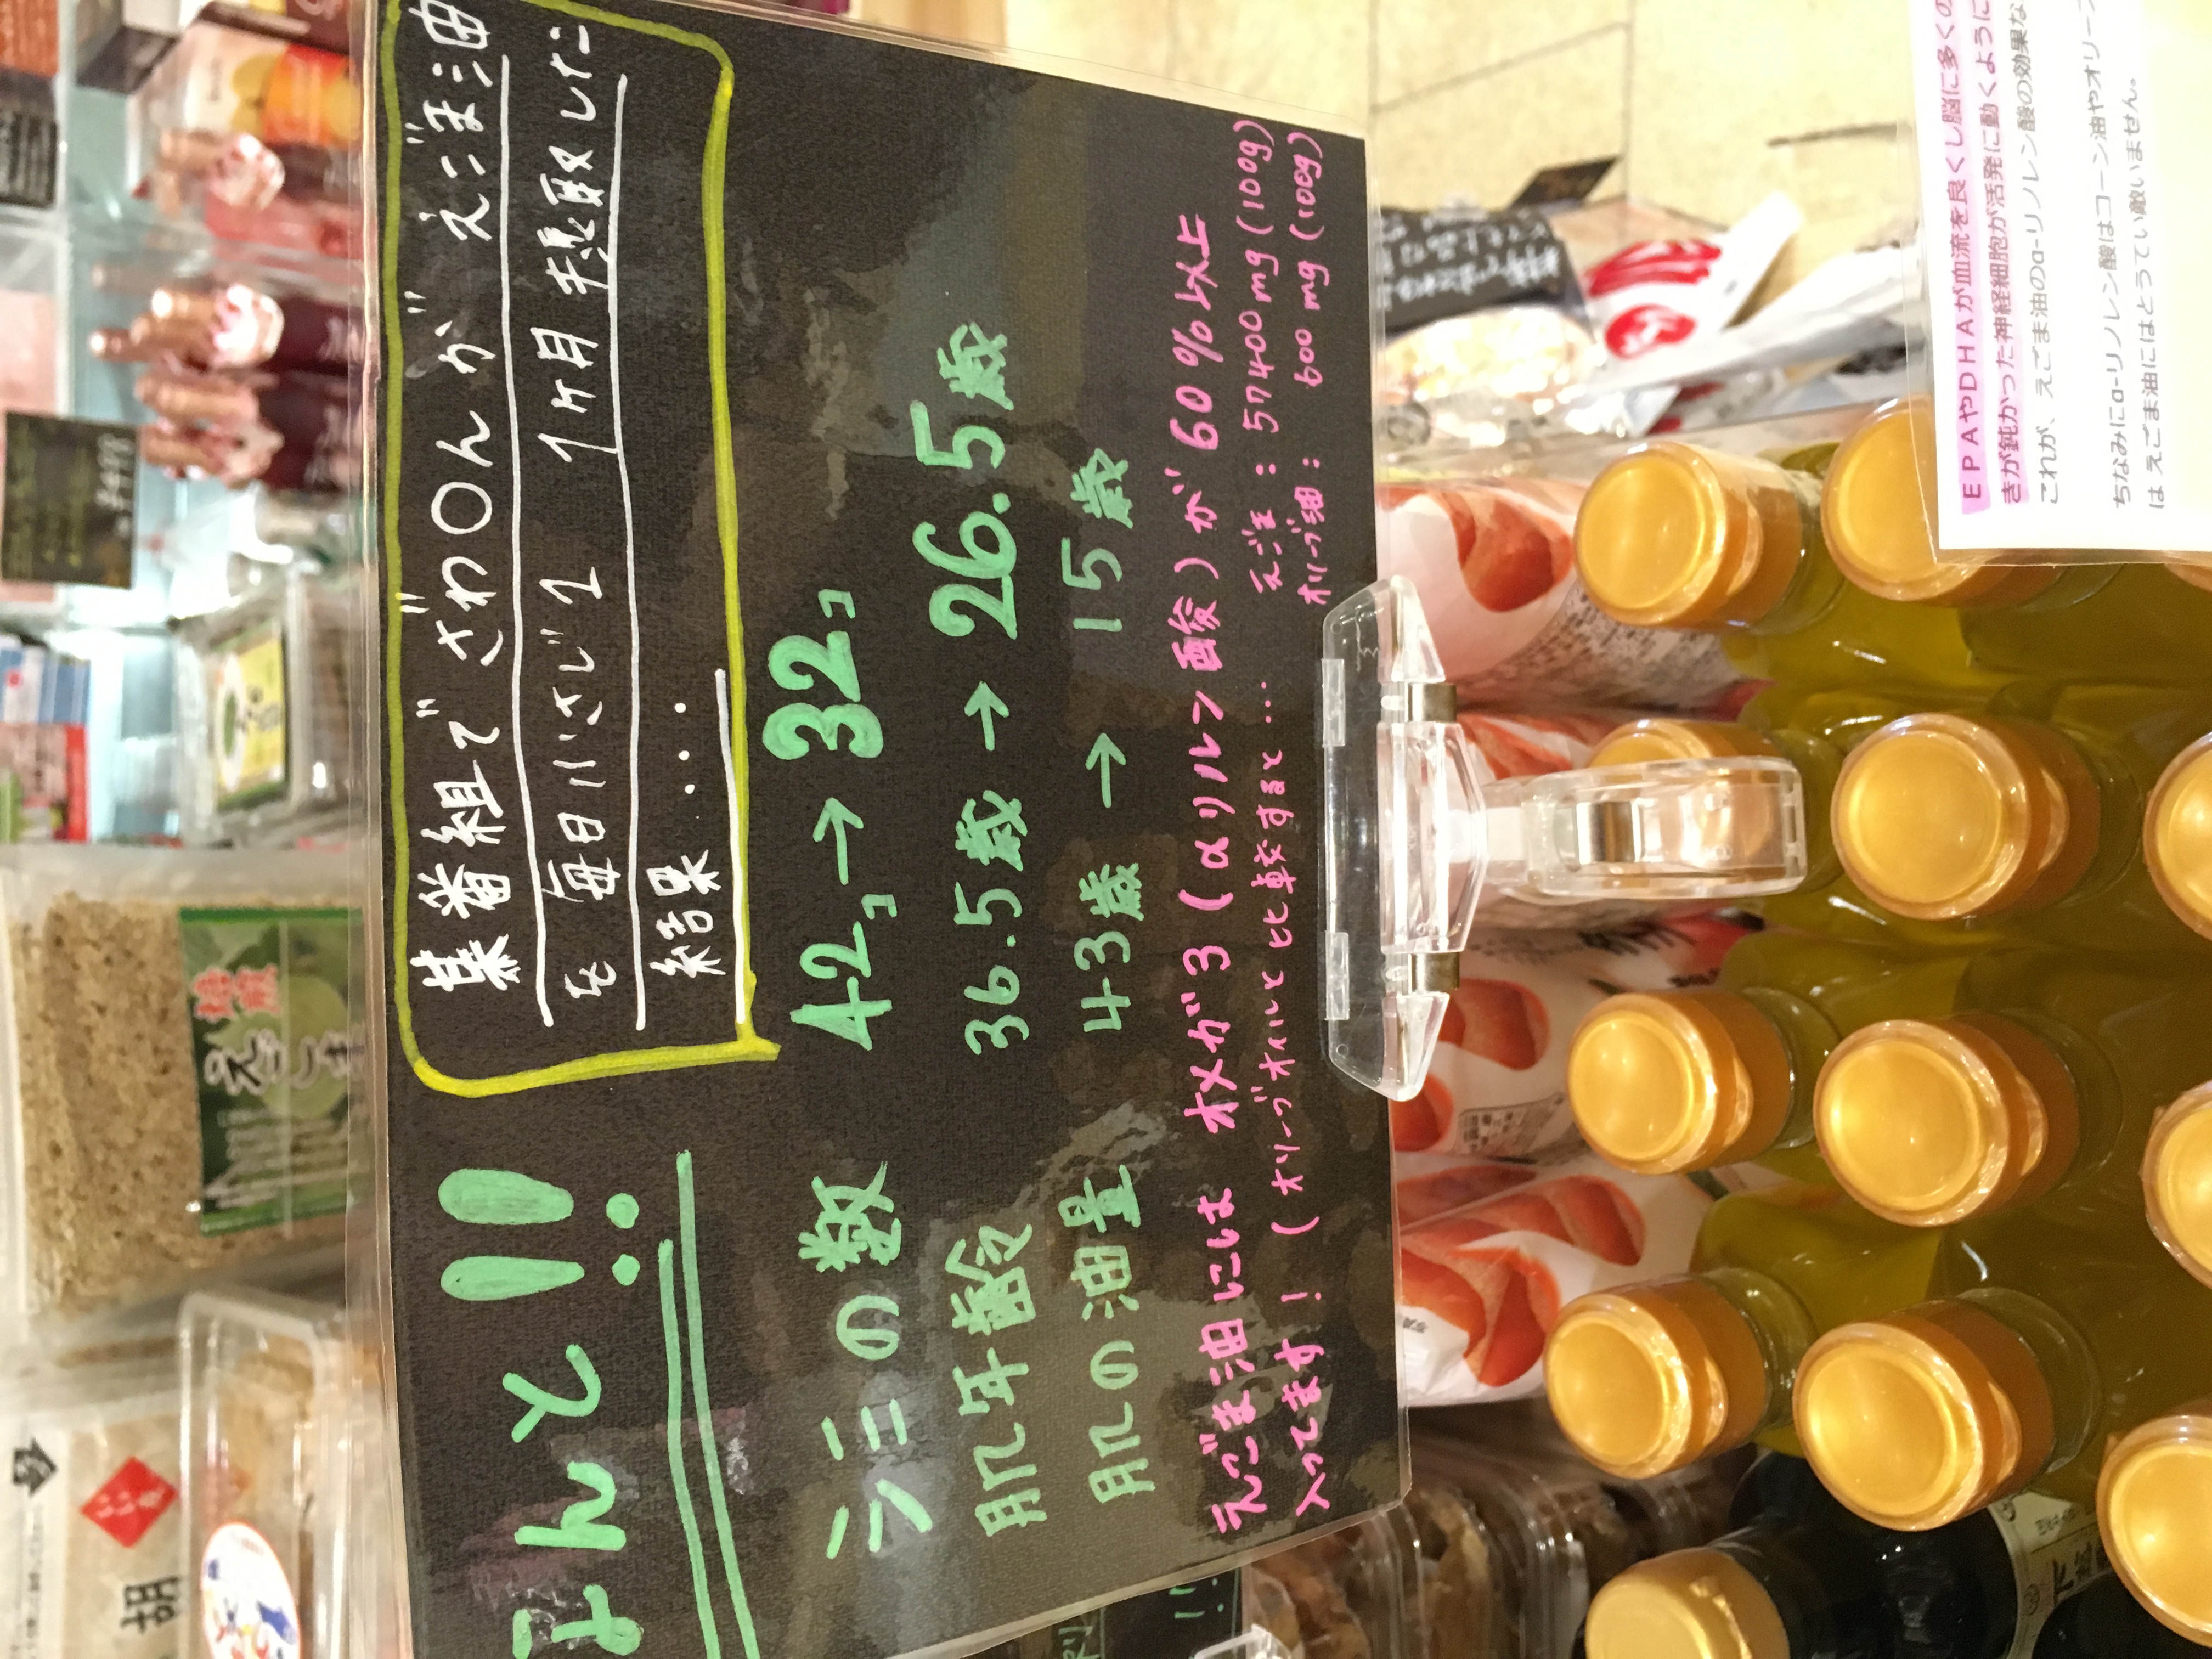 胡
焙煎
えごま
¥498
なんと!!
某番組で ざわ〇んが えごま油
を 毎日小さじ1 1ヶ月 摂取した
結果 ・・・
シミの数 42コ→32コ
肌年齢 36.5歳→26.5歳
肌の油量 43歳→15歳
えごま油には オメガ3(αリノレン酸)が60%以上
入ってます! (オリーブオイルと比較すると・・・ えごま:57400mg(100g)
オリーブ油: 600mg(100g)
EPAやDHAが血流を良くし脳に多くの
きが鈍かった神経細胞が活発に動くように
これが、えごま油のα-リノレン酸の効果な
ちなみにα-リノレン酸はコーン油やオリーブ
は えごま油にはとうてい敵いません。